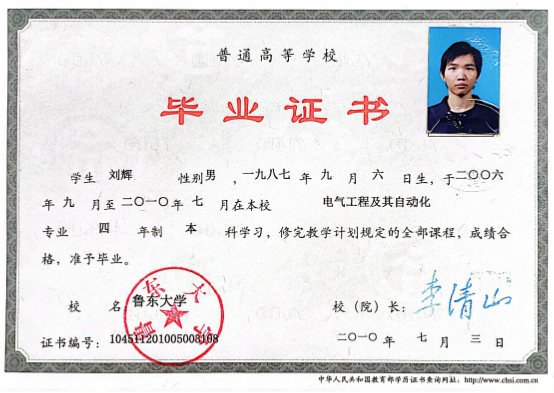 普通高等学校
毕业证书
学生 刘辉 性别 男 ,一九八七年 九 月 六 日生,于二〇〇六
年 九 月至二〇一〇年 七 月在本校 电气工程及其自动化
专业 四 年制 本 科学习,修完教学计划规定的全部课程,成绩合
格,准予毕业。
校 名: 鲁东大学 校(院)长: 李清山
鲁东大学
证书编号: 104511201005003108 二〇一〇年 七 月 三 日
中华人民共和国教育部学历证书查询网址: http://www.chsi.com.cn